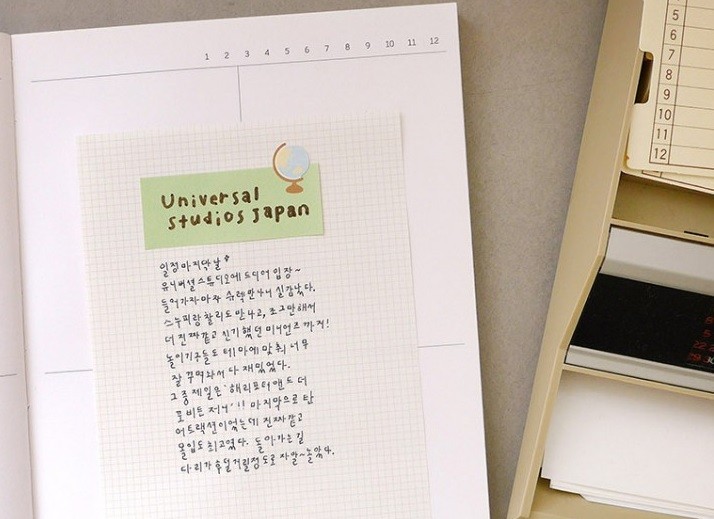 1 2 3 4 5 6 7 8 9 10 11 12
Universal
studios Japan
일정 마지막 날
유니버셜 스튜디오에 드디어 입장~
들어가자마자 슈렉 만나니 실감났다.
스누피랑 찰리도 만나고, 조그만해서
더 진짜같고 신기했던 미니언즈까지!
놀이기구들도 테마에 맞춰 너무
잘 꾸며놔서 다 재밌었다.
그 중 제일은 '해리포터 앤드 더
포비든 저니'!! 마지막으로 탄
어트랙션이었는데 진짜같고
몰입도 최고였다. 돌아가는 길
다리가 후덜거릴 정도로 자알~ 놀았다.
5
6
7
8
9
10
11
12